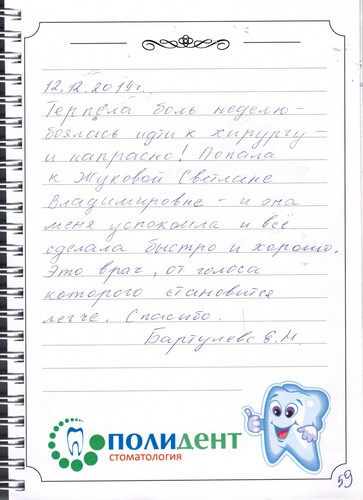 12.12.2014г.
Терпела боль неделю -
боялась идти к хирургу -
и напрасно! Попала
к Жуковой Светлане
Владимировне - и она
меня успокоила и всё
сделала быстро и хорошо.
Это врач, от голоса
которого становится
легче. Спасибо.
Бартулева Е.Н.
ПОЛИДЕНТ
СТОМАТОЛОГИЯ
59